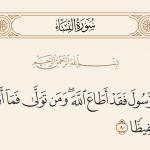 سُورَةُ النِّسَاءِ
بِسْمِ اللَّهِ الرَّحْمَٰنِ الرَّحِيمِ
رَّسُولَ فَقَدْ أَطَاعَ ٱللَّهَ ۖ وَمَن تَوَلَّىٰ فَمَآ أَر
فِيظًا ٨٠